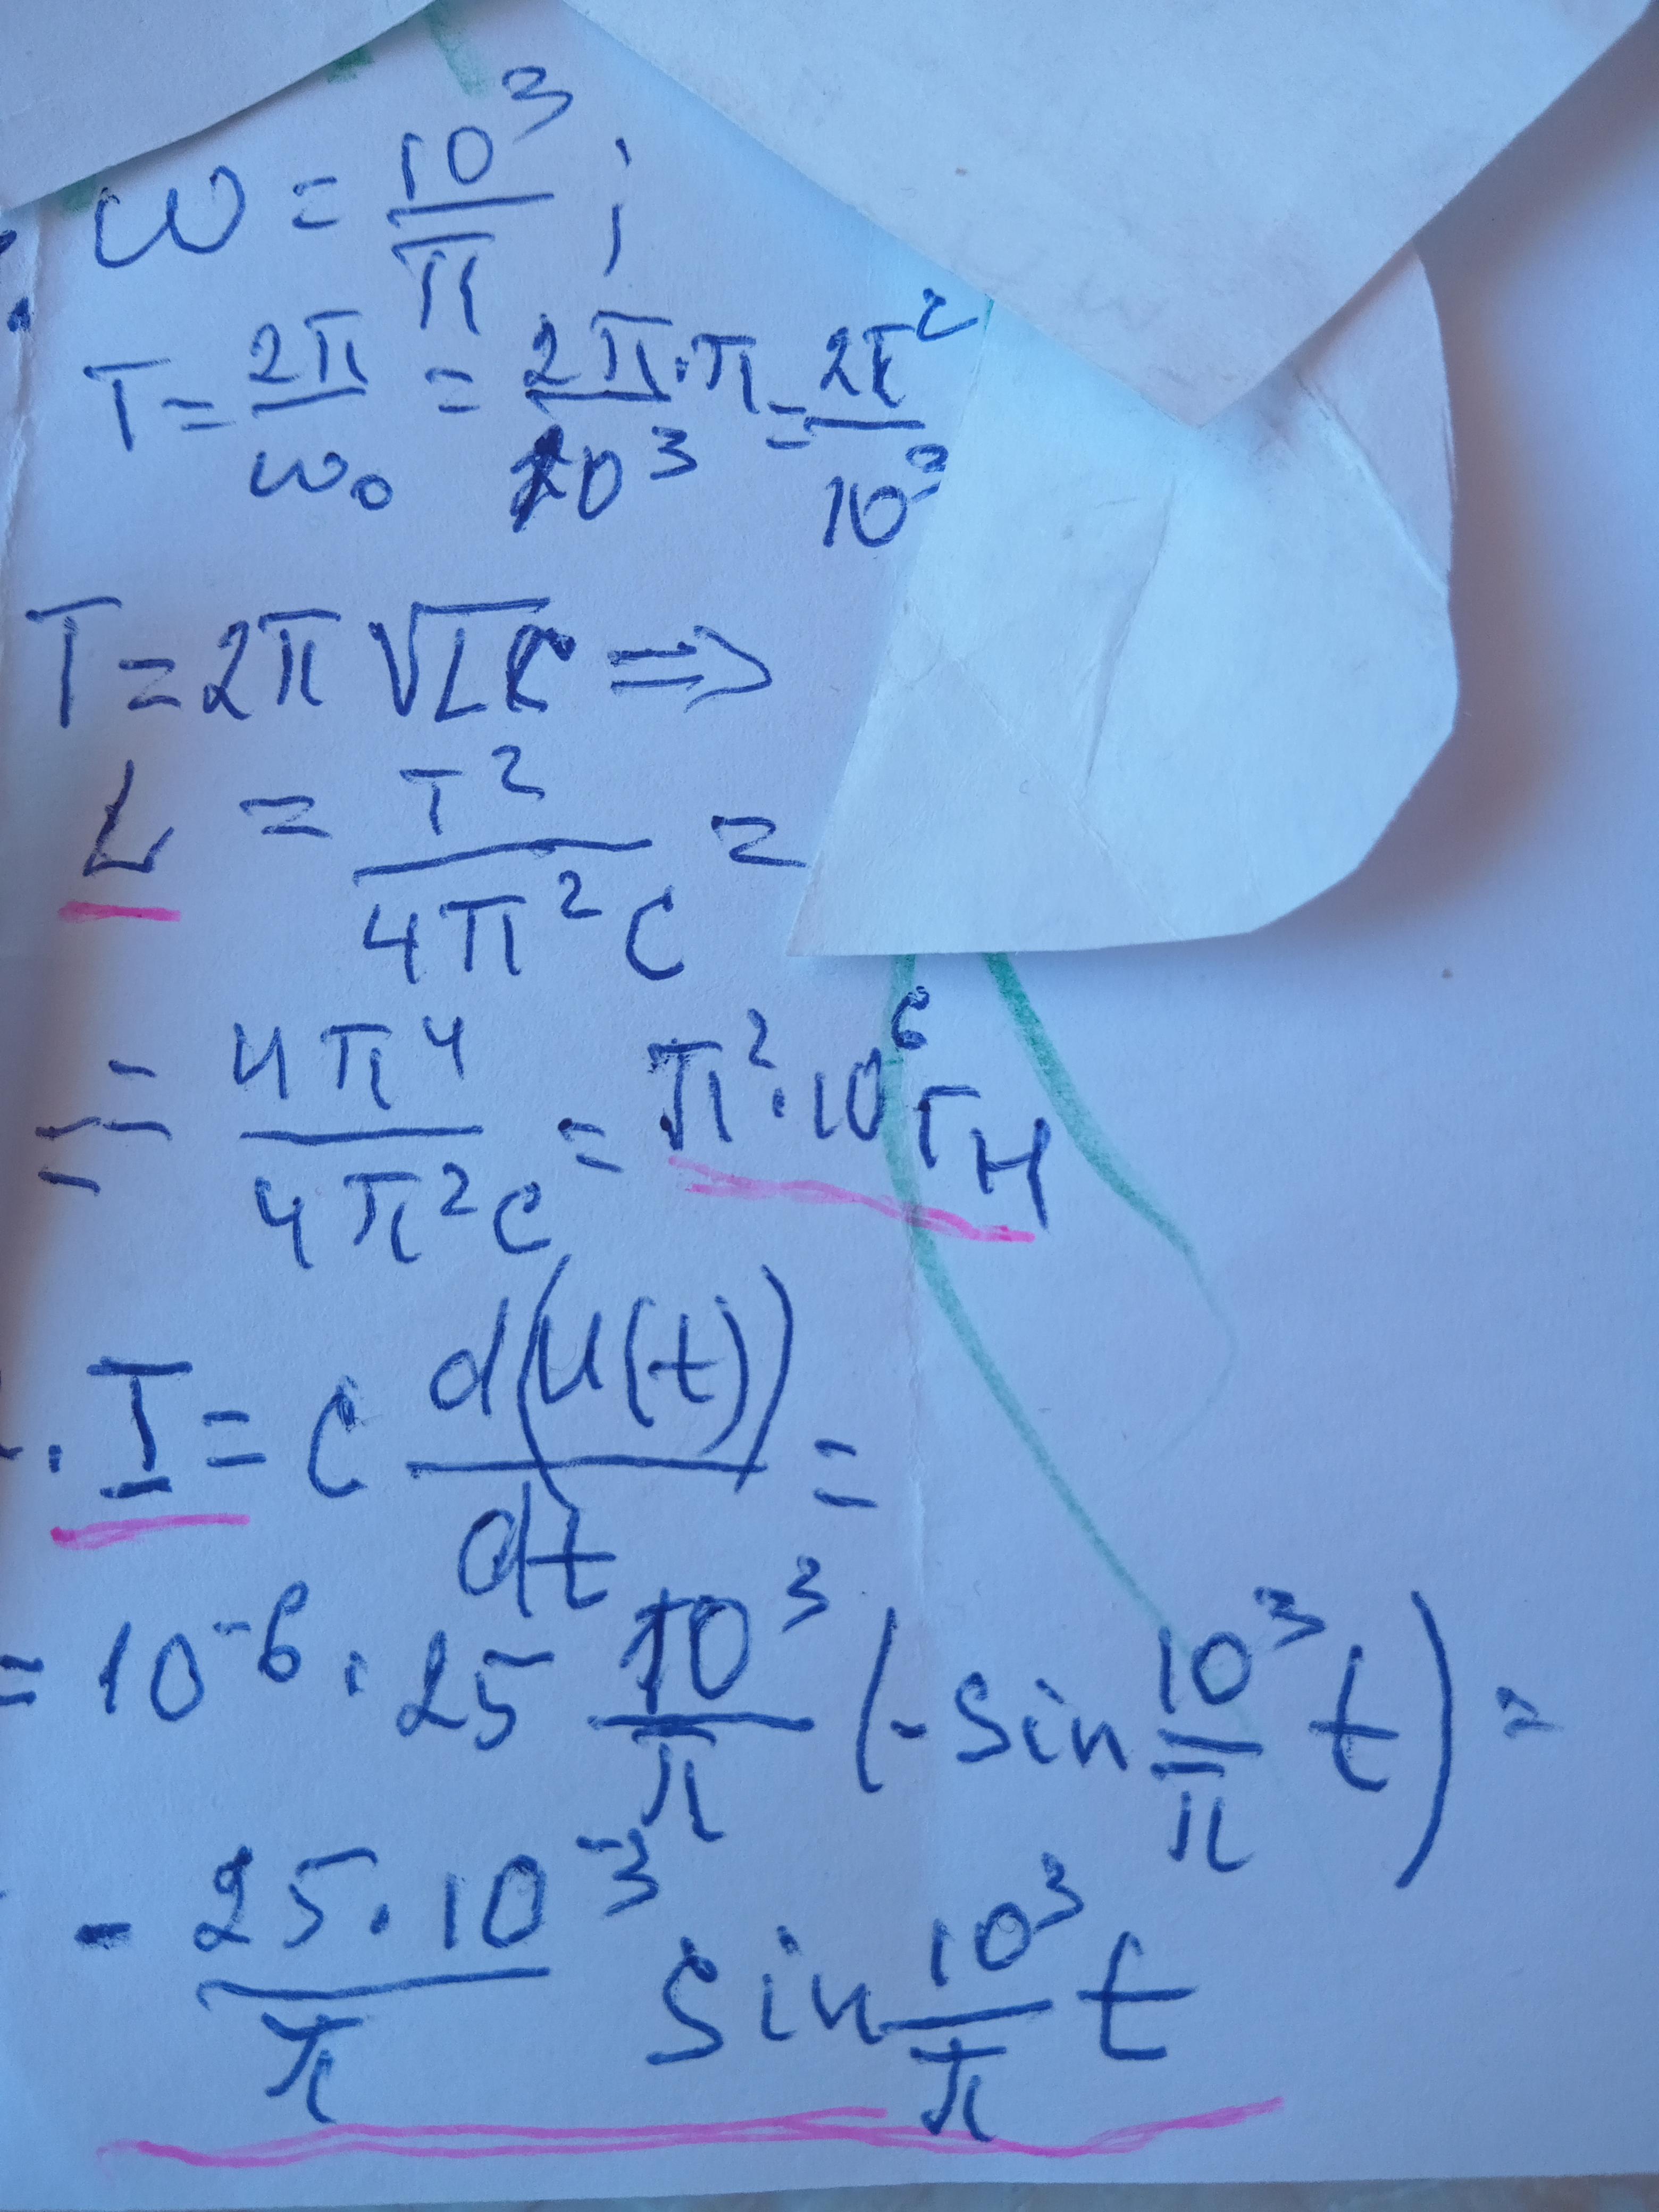 ω = 10³/π ;
T = 2π/ω₀ = 2π·π/10³ = 2π²/10³
T = 2π √LC ⇒
L = T²/4π²C =
= 4π⁴/4π²C = π²·10⁶ Гн
I = C d(U(t))/dt =
= 10⁻⁶ · 25 10³/π (- sin 10³/π t) =
- 25·10⁻³/π sin 10³/π t